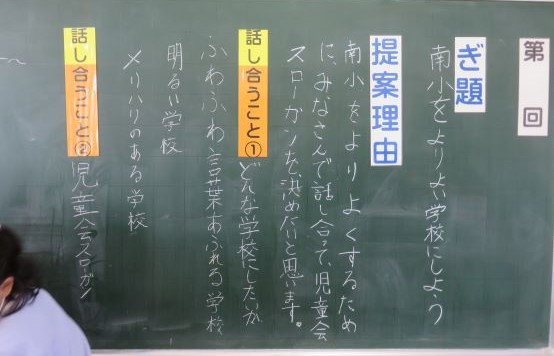 第 回
ぎ題
南小をよりよい学校にしよう
提案理由
南小をよりよくするため
に、みなさんで話し合って、児童会
スローガンを、決めたいと思います。
話し合うこと①どんな学校にしたいか
ふわふわ言葉あふれる学校
明るい学校
メリハリのある学校
話し合うこと②児童会スローガン